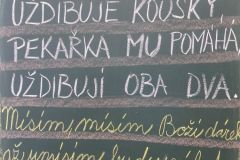 UŽDIBUJE KOUSKY,
PEKAŘKA MU POMÁHÁ,
UŽDIBUJÍ OBA DVA.
Mísím, mísím Boží dárek